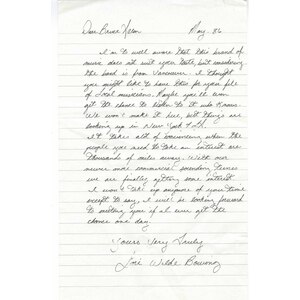 Dear Brian Nelson Aug. 86
I am to well aware that this brand of
music does not suit your taste, but considering
the band is from Vancouver. I thought
you might like to have this for your file
of Local musicians. Maybe you'll even
get the chance to listen to it who knows.
We won't make it here, but things are
looking up in New York
It takes alot of the
people you need to take an interest are
thousands of miles away. With
we are finally getting some interest
I won't take up anymore of your time
except to say, I will be looking forward
to meeting you if I ever get the
chance one day.
Yours Very Truly
Wilde